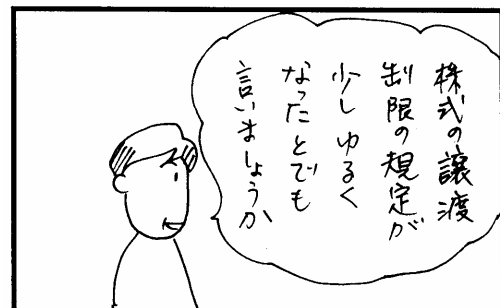 株式の譲渡
制限の規定が
少しゆるく
なったとでも
言いましょうか